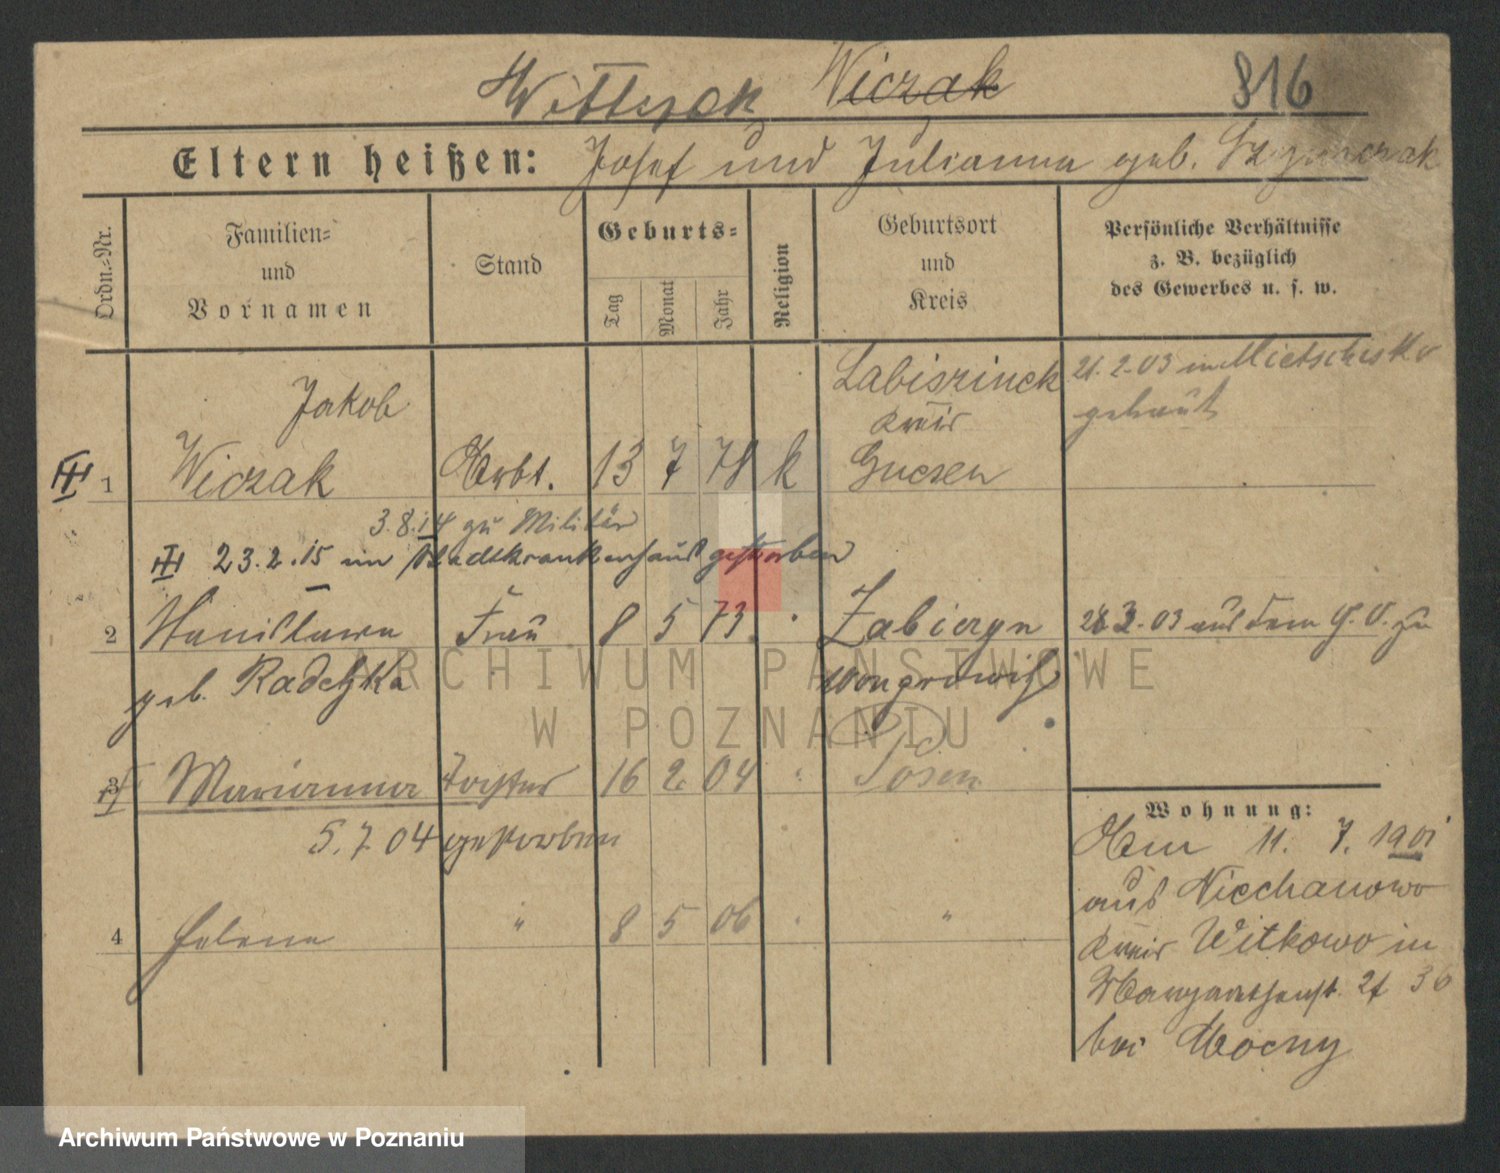 Wittyack Wiczak 816
Eltern heißen: Josef und Julianna geb.
Ordn.=Nr.
Familien=
und
Vornamen
Stand
Geburts=
Tag
Monat
Jahr
Religion
Geburtsort
und
Kreis
Persönliche Verhältnisse
z. B. bezüglich
des Gewerbes u. s. w.
Jakob
1 Wiczak Arbt. 13 7 78 k
Labiszinek
Kreis
Gnesen
21.2.03 in Mietschisko
getraut
3.8.14 zu Militär
23.2.15 im Stadtkrankenhaus gestorben
2 Stanislawa Frau 8 5 73 "
geb. Radetzka
Zabiczyn
Wongrowitz
3.03 aus dem G. V. zu
3 Marianna Tochter 16 2 04 " Posen
5.7.04 gestorben
4 Helene " 8 5 06 " "
Wohnung:
Am 11. 7. 1901
aus Niechanowo
Kreis Witkowo in
Margarethenst. 36
bei Mocny
ARCHIWUM PAŃSTWOWE
W POZNANIU
Archiwum Państwowe w Poznaniu